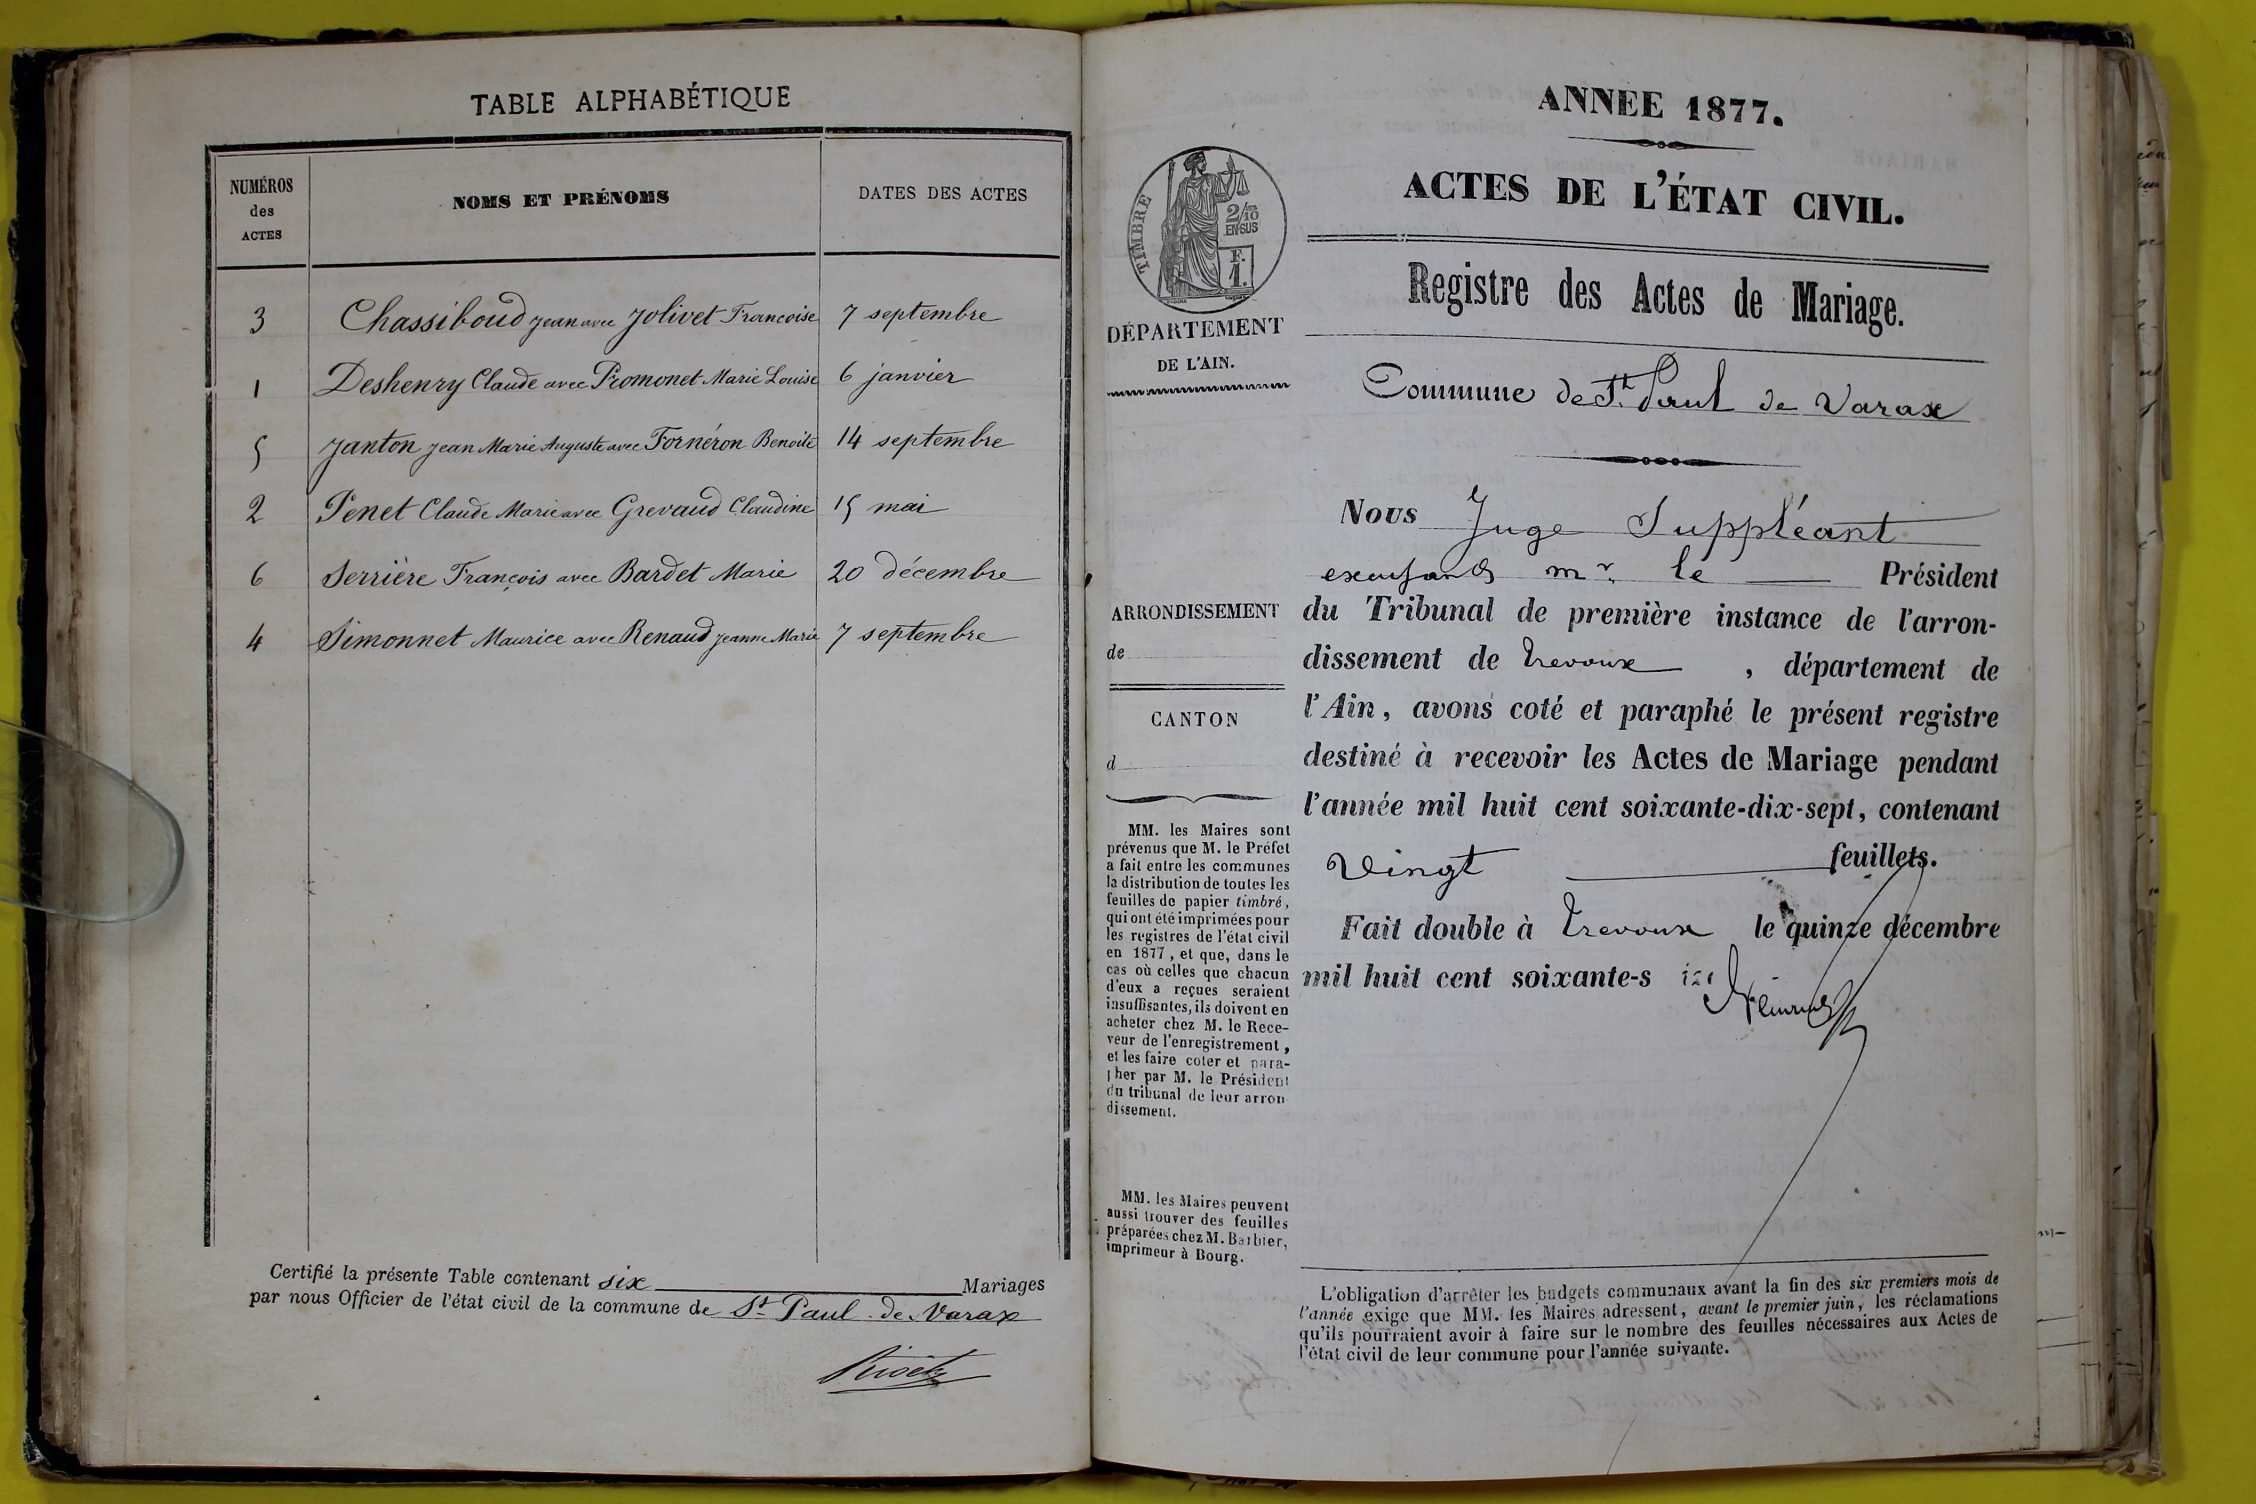 TABLE ALPHABÉTIQUE
NUMÉROS
des
ACTES
NOMS ET PRÉNOMS
DATES DES ACTES
3 Chassiboud Jean avec Jolivet Françoise 7 septembre
1 Deshenry Claude avec Promonet Marie Louise 6 janvier
5 Janton Jean Marie Auguste avec Fornéron Benoite 14 septembre
2 Penet Claude Marie avec Grevaud Claudine 15 mai
6 Serrière François avec Bardet Marie 20 décembre
4 Simonnet Maurice avec Renaud Jeanne Marie 7 septembre
Certifié la présente Table contenant six Mariages
par nous Officier de l'état civil de la commune de St Paul de Varax
ANNEE 1877.
ACTES DE L'ÉTAT CIVIL.
TIMBRE
2/10
EN SUS
F.
1.
DÉPARTEMENT
DE L'AIN.
Registre des Actes de Mariage.
Commune de St. Paul de Varax
Nous Juge Suppléant
Mr. le Président
du Tribunal de première instance de l'arron-
dissement de Trevoux, département de
l'Ain, avons coté et paraphé le présent registre
destiné à recevoir les Actes de Mariage pendant
l'année mil huit cent soixante-dix-sept, contenant
Vingt feuillets.
Fait double à Trevoux le quinze décembre
mil huit cent soixante-s
ARRONDISSEMENT
de
CANTON
d
MM. les Maires sont
prévenus que M. le Préfet
a fait entre les communes
la distribution de toutes les
feuilles de papier timbré,
qui ont été imprimées pour
les registres de l'état civil
en 1877, et que, dans le
cas où celles que chacun
d'eux a reçues seraient
insuffisantes, ils doivent en
acheter chez M. le Rece-
veur de l'enregistrement,
et les faire coter et para-
pher par M. le Président
du tribunal de leur arron
dissement.
MM. les Maires peuvent
aussi trouver des feuilles
préparées chez M. Barbier,
imprimeur à Bourg.
L'obligation d'arrêter les budgets communaux avant la fin des six premiers mois de
l'année exige que MM. les Maires adressent, avant le premier juin, les réclamations
qu'ils pourraient avoir à faire sur le nombre des feuilles nécessaires aux Actes de
l'état civil de leur commune pour l'année suivante.